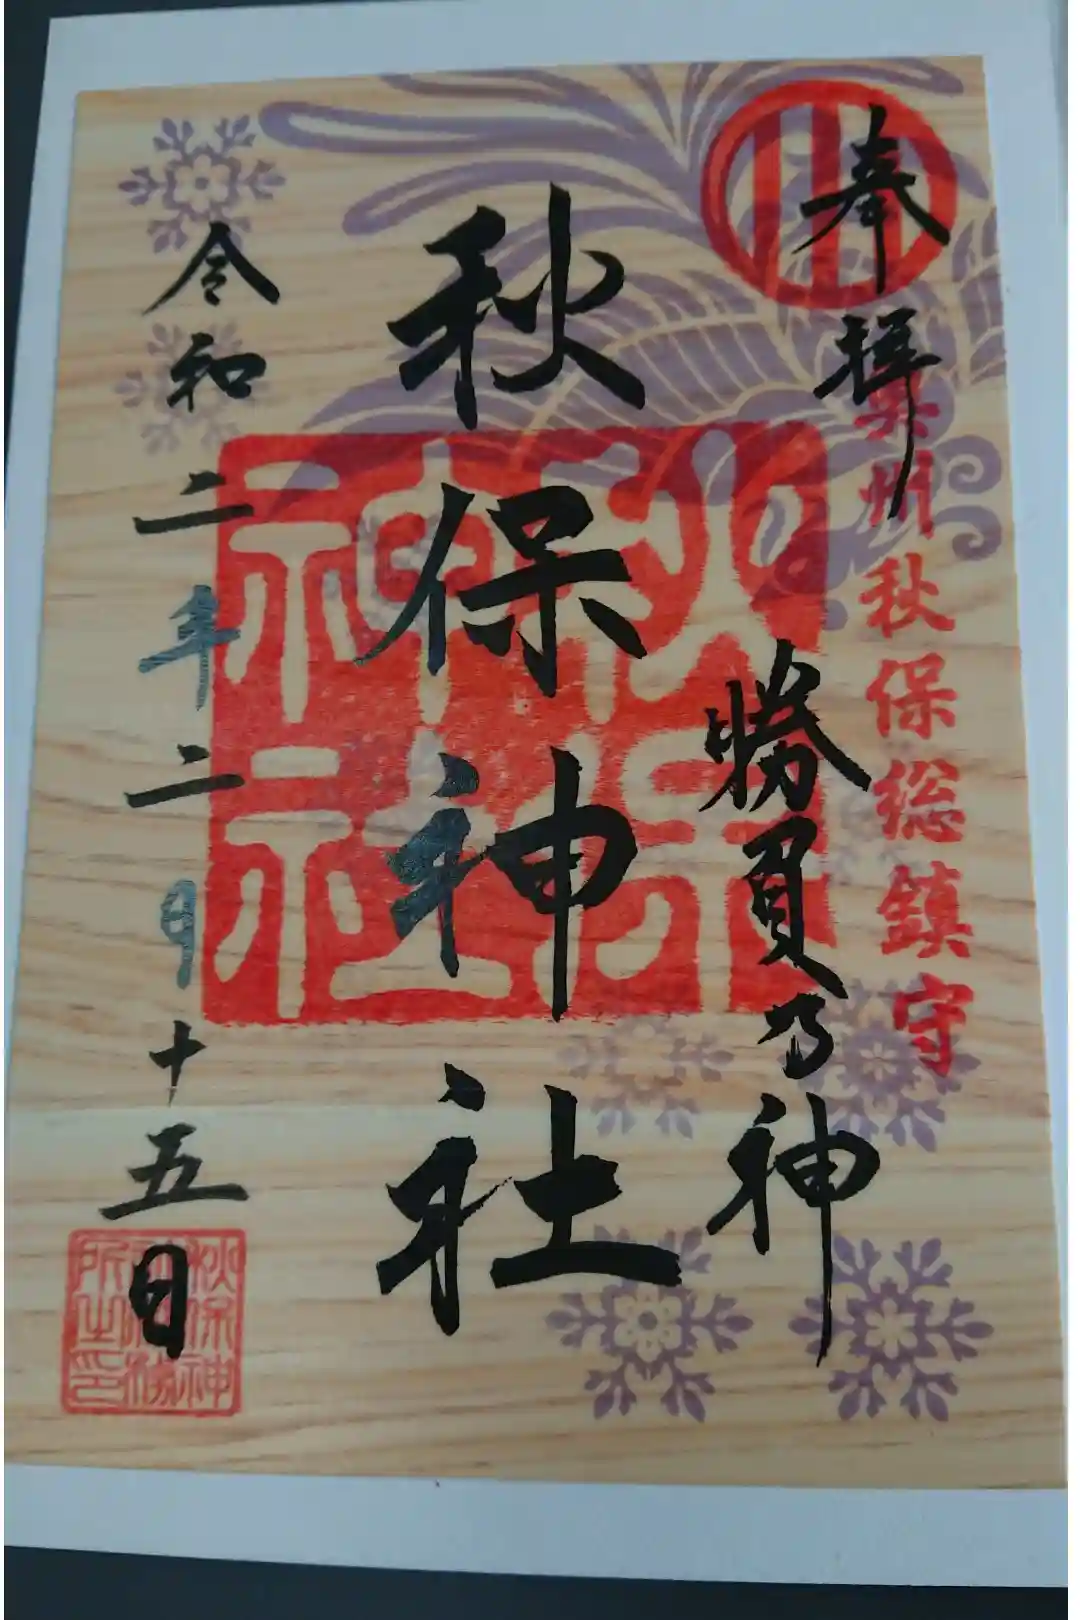 奉拝
奥州秋保総鎮守
勝負乃神
秋保神社
秋保神社
令和二年二月十五日
秋保神
所之印